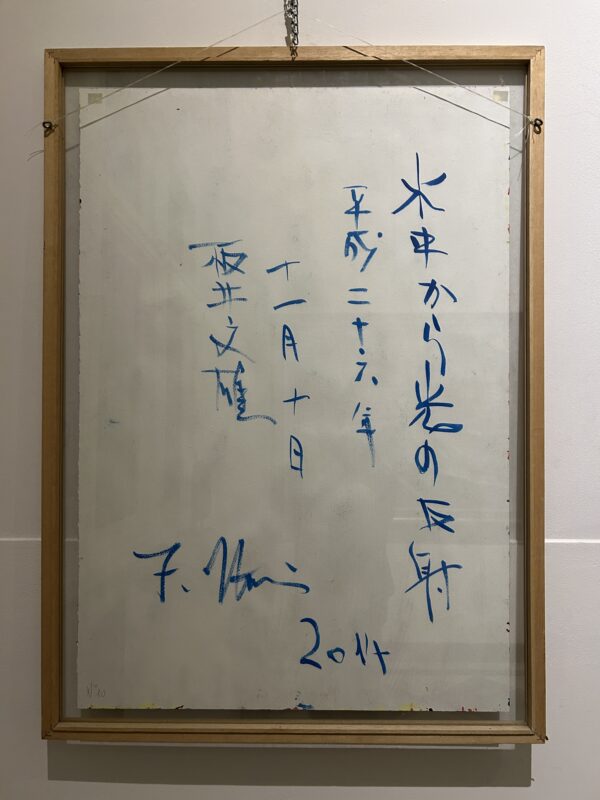 水中から光の反射
平成二十六年
十一月十日
井文雄
F.
2014